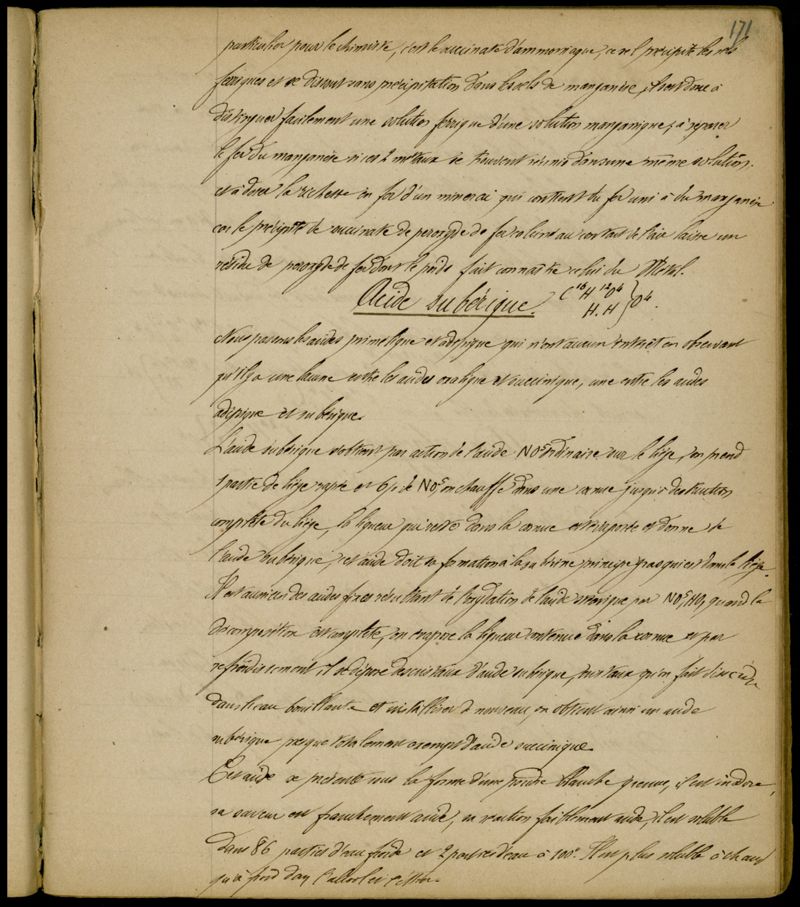 171
particulier pour le chimiste, c'est le succinate d'ammoniaque, ce sel précipite les sels
ferriques et se dissout sans précipitation dans les sels de manganèse, il sert donc à
distinguer facilement une solution ferrique d'une solution manganique, à séparer
le fer du manganèse si ces 2 métaux se trouvent réunis dans une même solution
et à doser la richesse en fer d'un minerai qui contient du fer uni à du manganèse
car le précipité de succinate de peroxyde de fer calciné au contact de l'air laisse un
résidu de peroxyde de fer dont le poids fait connaître celui du Métal.
Acide subérique. C16H12O4 H.H } O4.
Nous passons les acides pimélique et adipique qui n'ont aucun intérêt en observant
qu'il y a une lacune entre les acides oxalique et succinique, une entre les acides
adipique et subérique.
L'acide subérique s'obtient par action de l'acide NO5 ordinaire sur le liège, on prend
1 partie de liège rapé et 6 p. de NO5 on chauffe dans une cornue jusqu'à destruction
complète du liège, la liqueur qui reste dans la cornue est évaporée et donne de
l'acide subérique, cet acide doit sa formation à la subérine principe gras qui est dans le liège.
Il est aussi un des acides fixes résultant de l'oxydation de l'acide stéarique par NO5, HO, quand la
décomposition est complète, on évapore la liqueur contenue dans la cornue et par
refroidissement il se dépose des cristaux d'acide subérique, cristaux qu'on fait dissoudre
dans l'eau bouillante et cristalliser à nouveau, on obtient ainsi un acide
subérique presque totalement exempt d'acide succinique.
Cet acide se présente sous la forme d'une poudre blanche grenue, il est inodore,
sa saveur est franchement acide, sa réaction faiblement acide, il est soluble
dans 86 parties d'eau froide et 2 parties d'eau à 100°. Il est plus soluble à chaud
qu'à froid dans l'alcool et l'éther.